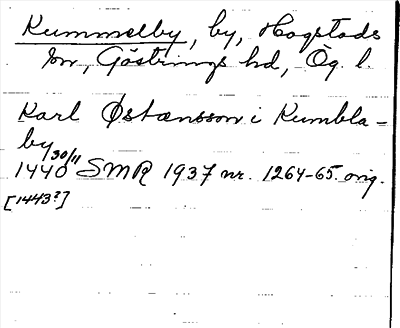 Kummelby, by, Hogstads
sn, Göstrings hd, Ög. l.
Karl Østænsson i Kumbla-
by
1440 30/11 SMR 1937 nr. 1264-65. orig.
[1443?]